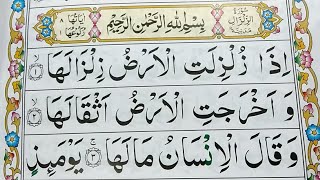 سُوْرَةُ الزِّلْزَالِ مَدَنِيَّةٌ
بِسْمِ اللّٰهِ الرَّحْمٰنِ الرَّحِيْمِ
اٰيَاتُهَا ٨
اِذَا زُلْزِلَتِ الْاَرْضُ زِلْزَالَهَا ۝١
وَ اَخْرَجَتِ الْاَرْضُ اَثْقَالَهَا ۝٢
وَ قَالَ الْاِنْسَانُ مَا لَهَا ۚ ۝٣ يَوْمَئِذٍ